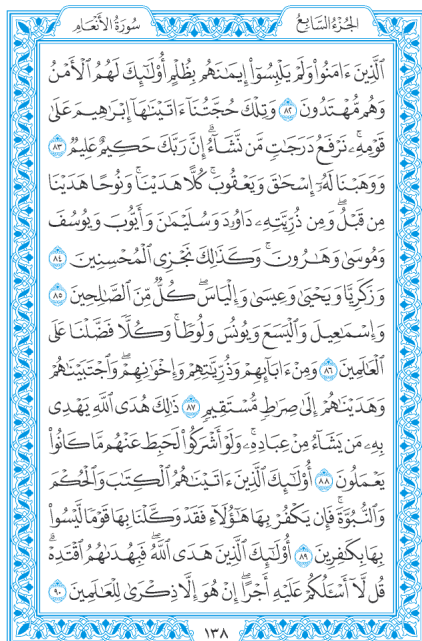 الجزء السابع
سورة الأنعام
ٱلَّذِينَ ءَامَنُوا۟ وَلَمْ يَلْبِسُوٓا۟ إِيمَـٰنَهُم بِظُلْمٍ أُو۟لَـٰٓئِكَ لَهُمُ ٱلْأَمْنُ
وَهُم مُّهْتَدُونَ ٨٢ وَتِلْكَ حُجَّتُنَآ ءَاتَيْنَـٰهَآ إِبْرَٰهِيمَ عَلَىٰ
قَوْمِهِۦ ۚ نَرْفَعُ دَرَجَـٰتٍ مَّن نَّشَآءُ ۗ إِنَّ رَبَّكَ حَكِيمٌ عَلِيمٌ ٨٣
وَوَهَبْنَا لَهُۥٓ إِسْحَـٰقَ وَيَعْقُوبَ ۚ كُلًّا هَدَيْنَا ۚ وَنُوحًا هَدَيْنَا
مِن قَبْلُ ۖ وَمِن ذُرِّيَّتِهِۦ دَاوُۥدَ وَسُلَيْمَـٰنَ وَأَيُّوبَ وَيُوسُفَ
وَمُوسَىٰ وَهَـٰرُونَ ۚ وَكَذَٰلِكَ نَجْزِى ٱلْمُحْسِنِينَ ٨٤
وَزَكَرِيَّا وَيَحْيَىٰ وَعِيسَىٰ وَإِلْيَاسَ ۖ كُلٌّ مِّنَ ٱلصَّـٰلِحِينَ ٨٥
وَإِسْمَـٰعِيلَ وَٱلْيَسَعَ وَيُونُسَ وَلُوطًا ۚ وَكُلًّا فَضَّلْنَا عَلَى
ٱلْعَـٰلَمِينَ ٨٦ وَمِنْ ءَابَآئِهِمْ وَذُرِّيَّـٰتِهِمْ وَإِخْوَٰنِهِمْ ۖ وَٱجْتَبَيْنَـٰهُمْ
وَهَدَيْنَـٰهُمْ إِلَىٰ صِرَٰطٍ مُّسْتَقِيمٍ ٨٧ ذَٰلِكَ هُدَى ٱللَّهِ يَهْدِى
بِهِۦ مَن يَشَآءُ مِنْ عِبَادِهِۦ ۚ وَلَوْ أَشْرَكُوا۟ لَحَبِطَ عَنْهُم مَّا كَانُوا۟
يَعْمَلُونَ ٨٨ أُو۟لَـٰٓئِكَ ٱلَّذِينَ ءَاتَيْنَـٰهُمُ ٱلْكِتَـٰبَ وَٱلْحُكْمَ
وَٱلنُّبُوَّةَ ۚ فَإِن يَكْفُرْ بِهَا هَـٰٓؤُلَآءِ فَقَدْ وَكَّلْنَا بِهَا قَوْمًا لَّيْسُوا۟
بِهَا بِكَـٰفِرِينَ ٨٩ أُو۟لَـٰٓئِكَ ٱلَّذِينَ هَدَى ٱللَّهُ ۖ فَبِهُدَىٰهُمُ ٱقْتَدِهْ ۗ
قُل لَّآ أَسْـَٔلُكُمْ عَلَيْهِ أَجْرًا ۖ إِنْ هُوَ إِلَّا ذِكْرَىٰ لِلْعَـٰلَمِينَ ٩٠
١٣٨